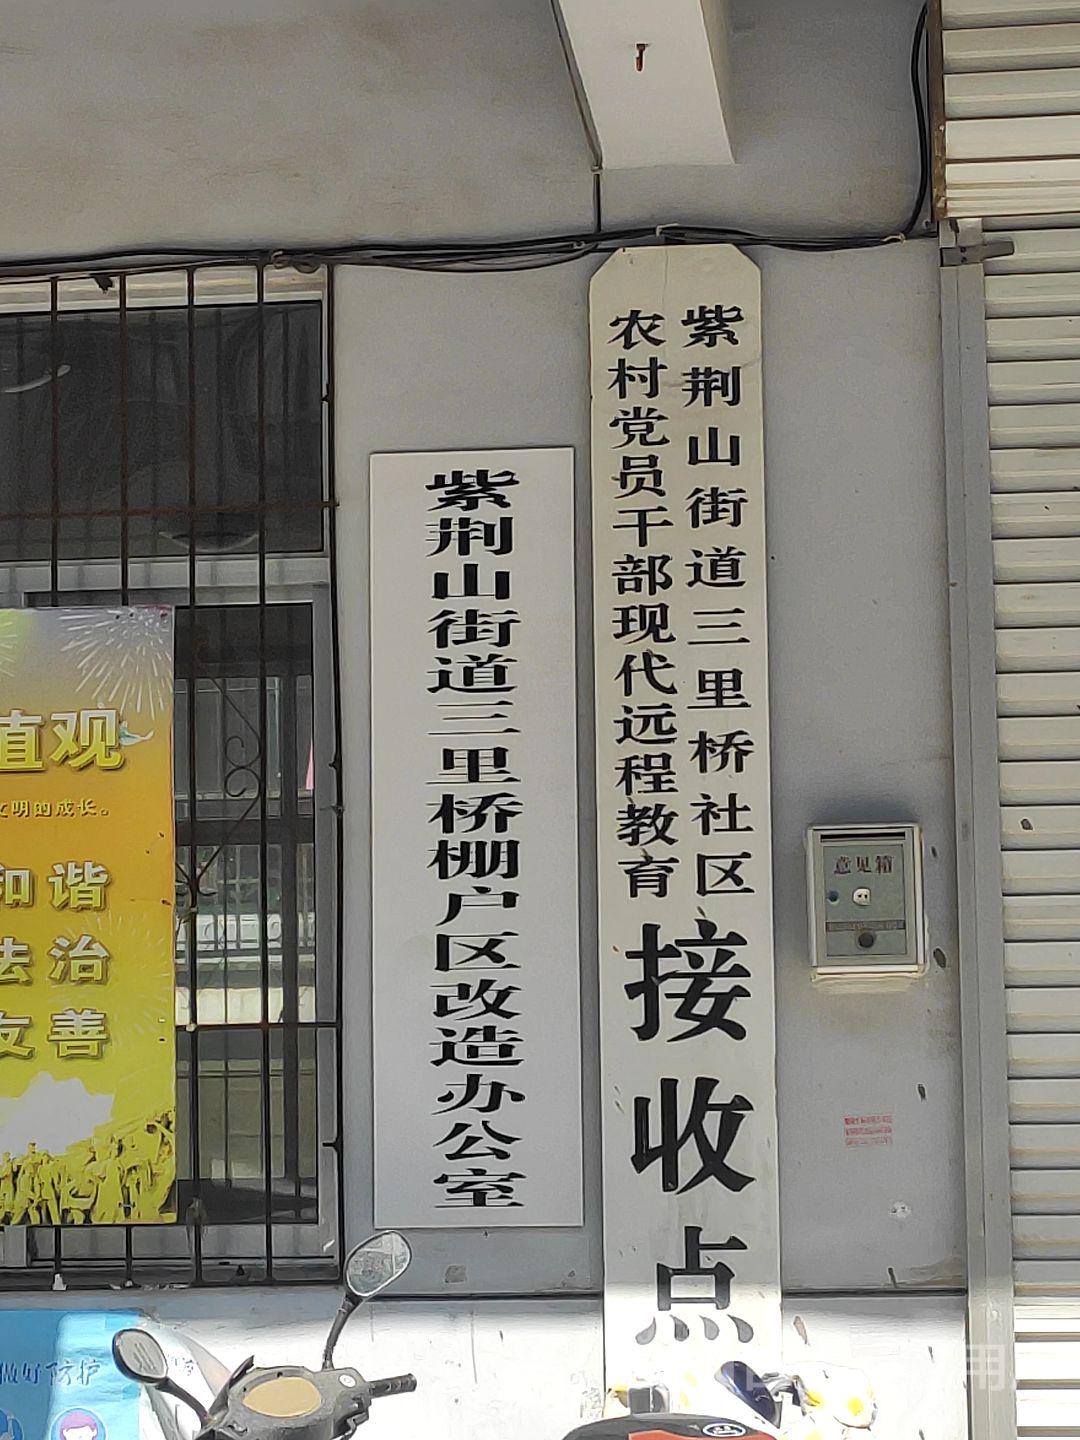 紫荆山街道三里桥社区
农村党员干部现代远程教育
接收点
紫荆山街道三里桥棚户区改造办公室
意见箱
直观
文明的成长。
和谐
法治
友善
做好防护
用